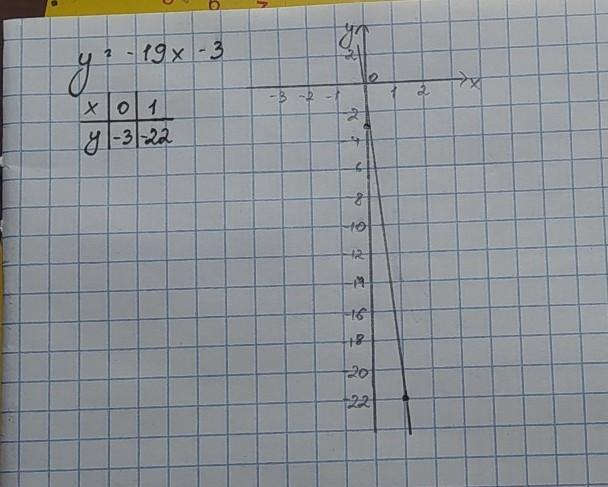 y = -19x - 3
x 0 1
y -3 -22
y
2
0
-3 -2 -1 1 2 x
2
-4
6
8
-10
-12
-14
-16
-18
-20
-22